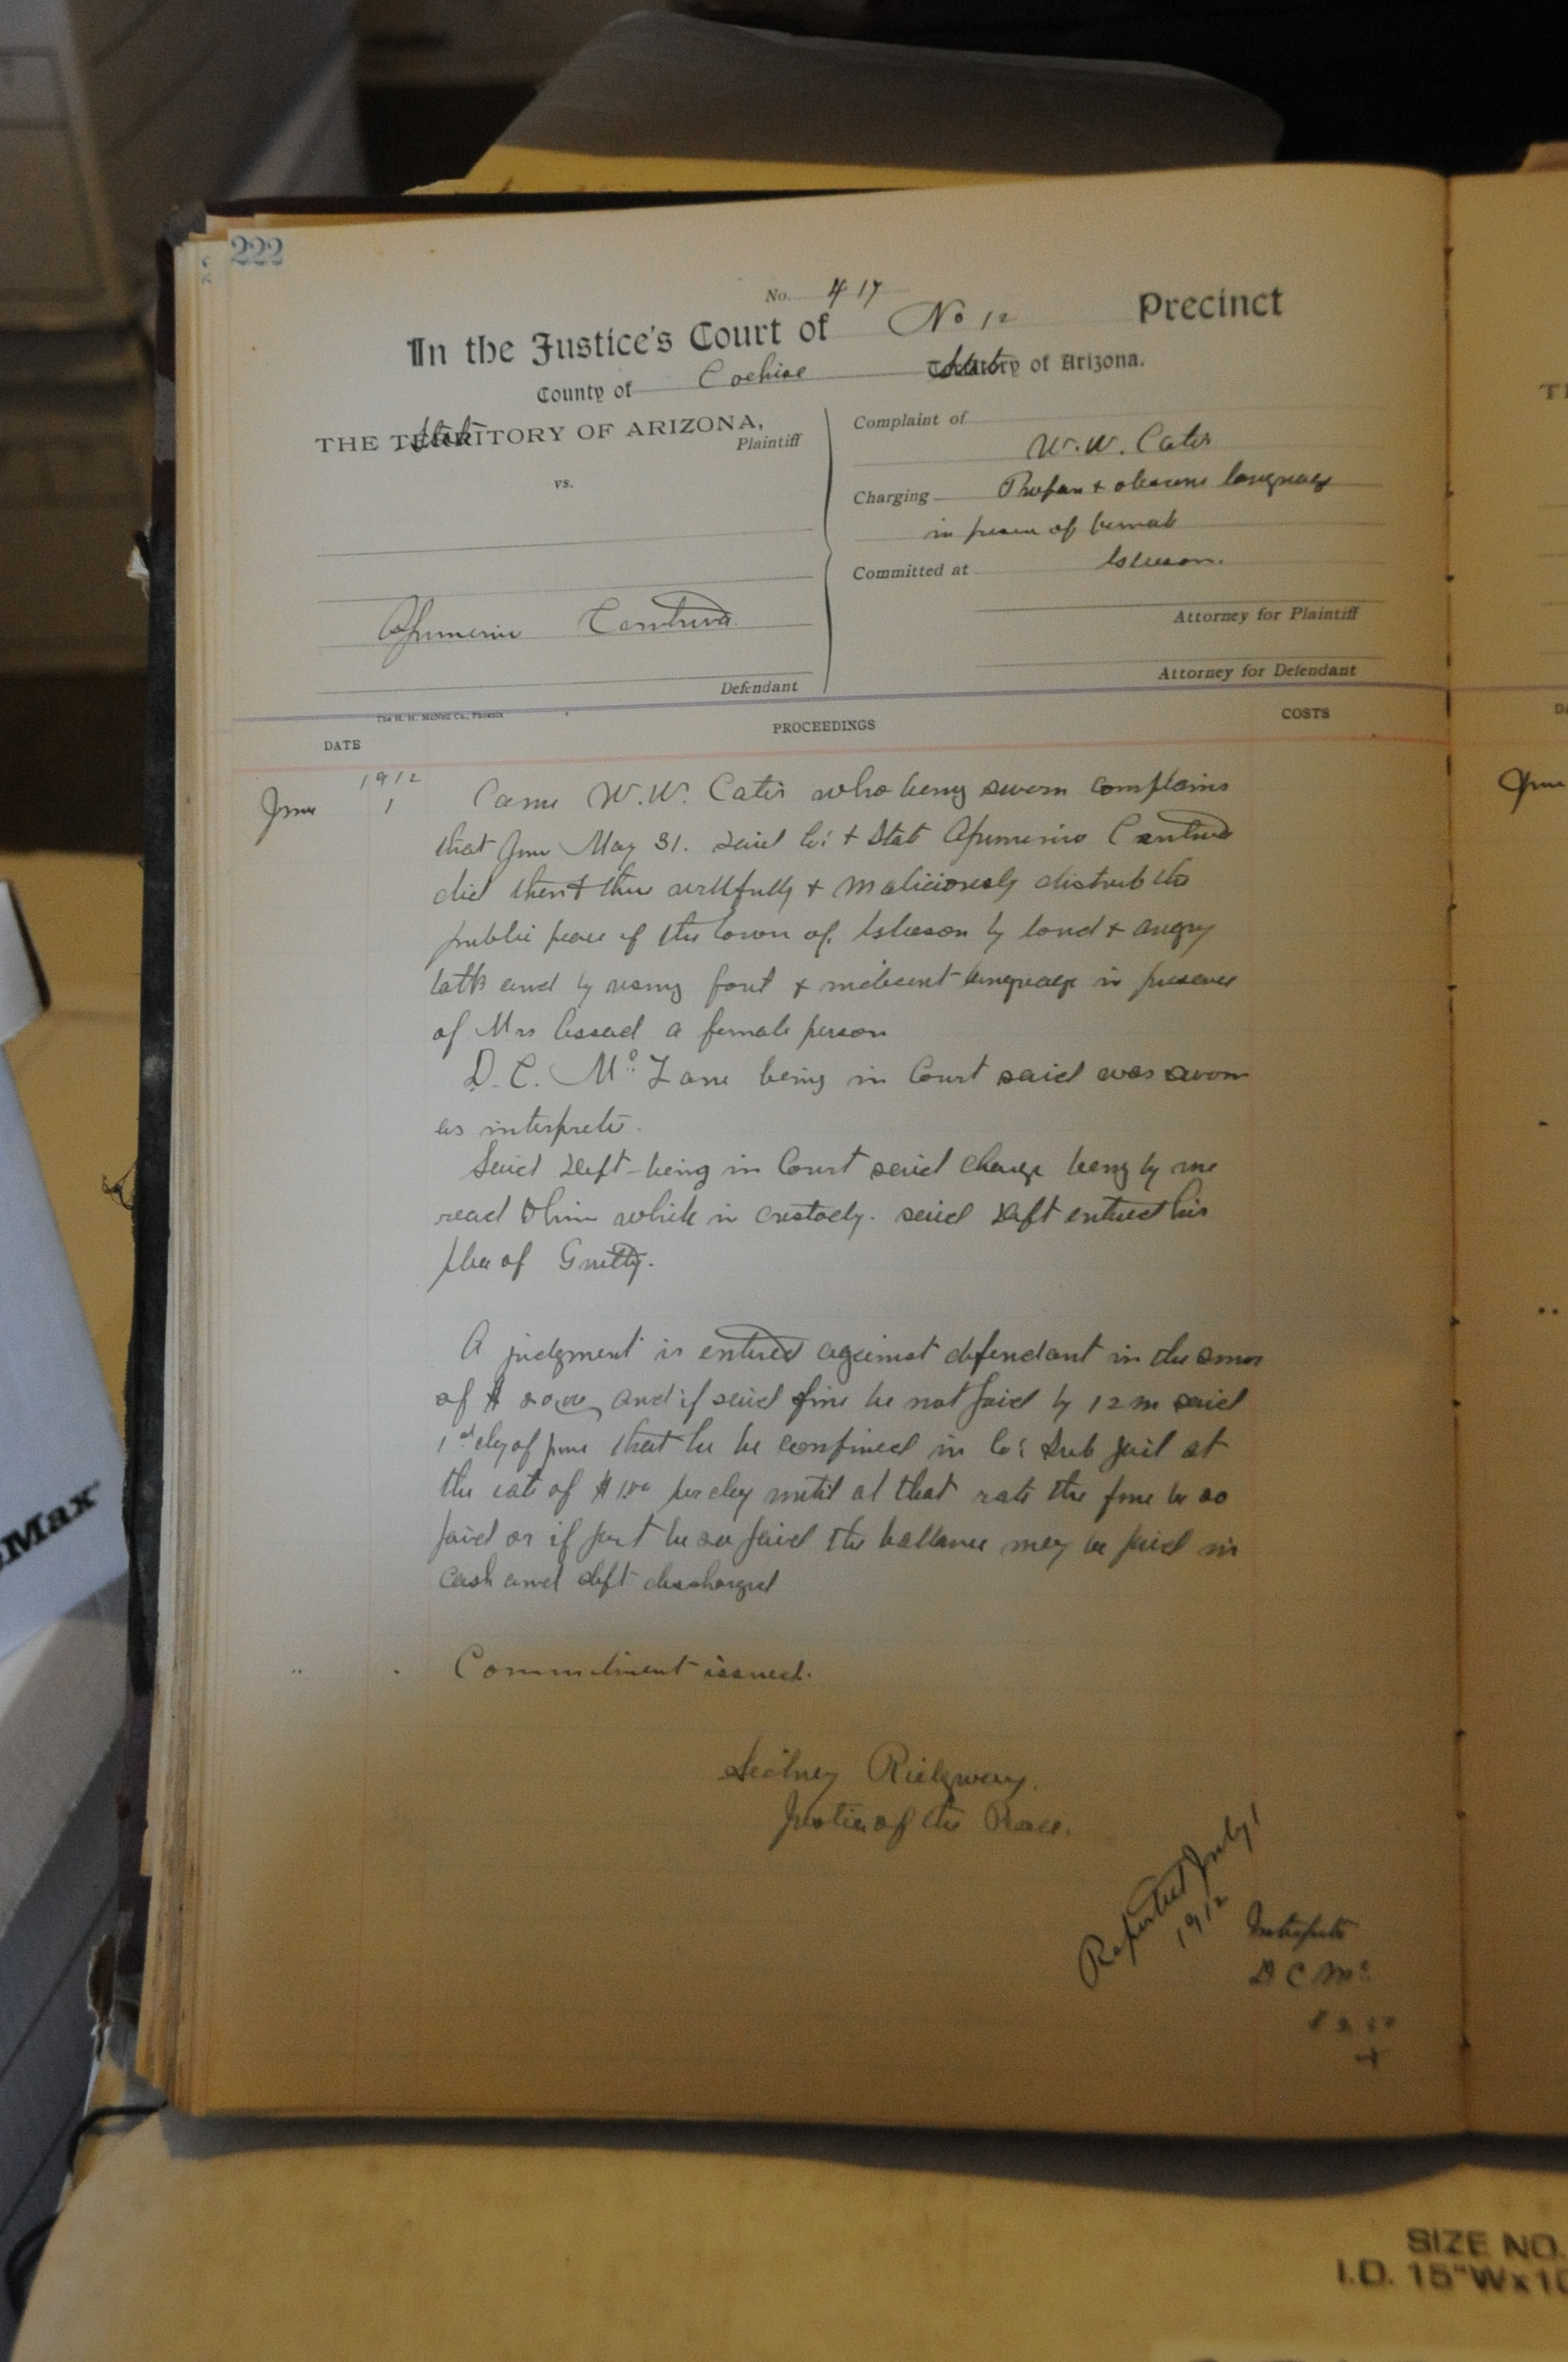 222
No. 417
In the Justice's Court of No 12 Precinct
County of Cochise State of Arizona.
THE State OF ARIZONA,
Plaintiff
vs.
Defendant
Complaint of
W. W. Cates
Charging Profan + obscene language
in presen of female
Committed at Gleeson.
Attorney for Plaintiff
Attorney for Defendant
The H. H. McNeil Co., Phoenix
DATE PROCEEDINGS COSTS
1912
June 1 Came W. W. Cates who being sworn complains
that June May 31. said Co: + State
did then + there willfully + maliciously distrub the
public peace of the town of Gleeson by loud + angry
talk and by using foul + indecent language in presence
of Mrs a female person
D. C. Mc Lane being in Court said was sworn
as interpreter.
Said Deft being in Court said charge being by me
read to him while in custody. said Deft entered his
plea of Guilty.
A judgment is entered against defendant in the sum
of $ 20.00 and if said fine be not paid by 12 m said
1st day of June that he be confined in Co: Sub jail at
the rate of $1.00 per day until at that rate the fine be so
paid or if part be so paid the ballance may be paid in
cash and deft discharged
Commitment issued.
Sidney Ridgway.
Justice of the Peace.
Reported July 1
1912
Interpreter
D C Mc
SIZE NO.
I.D. 15"W x 10
Max